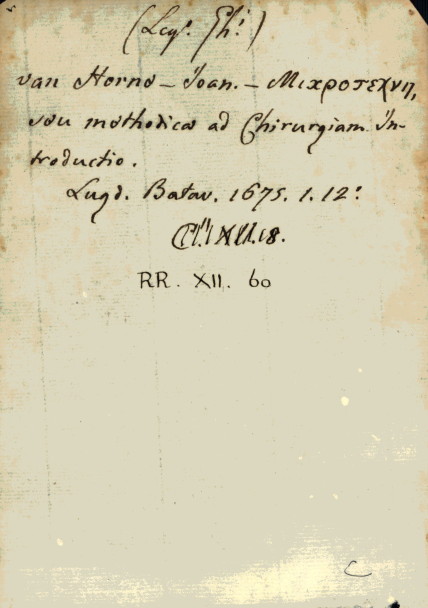 van Horne – Joan. – Μικροτεχνη,
seu methodica ad Chirurgiam In-
troductio.
Lugd. Batav. 1675. 1. 12°.
18.
RR. XII. 60
C